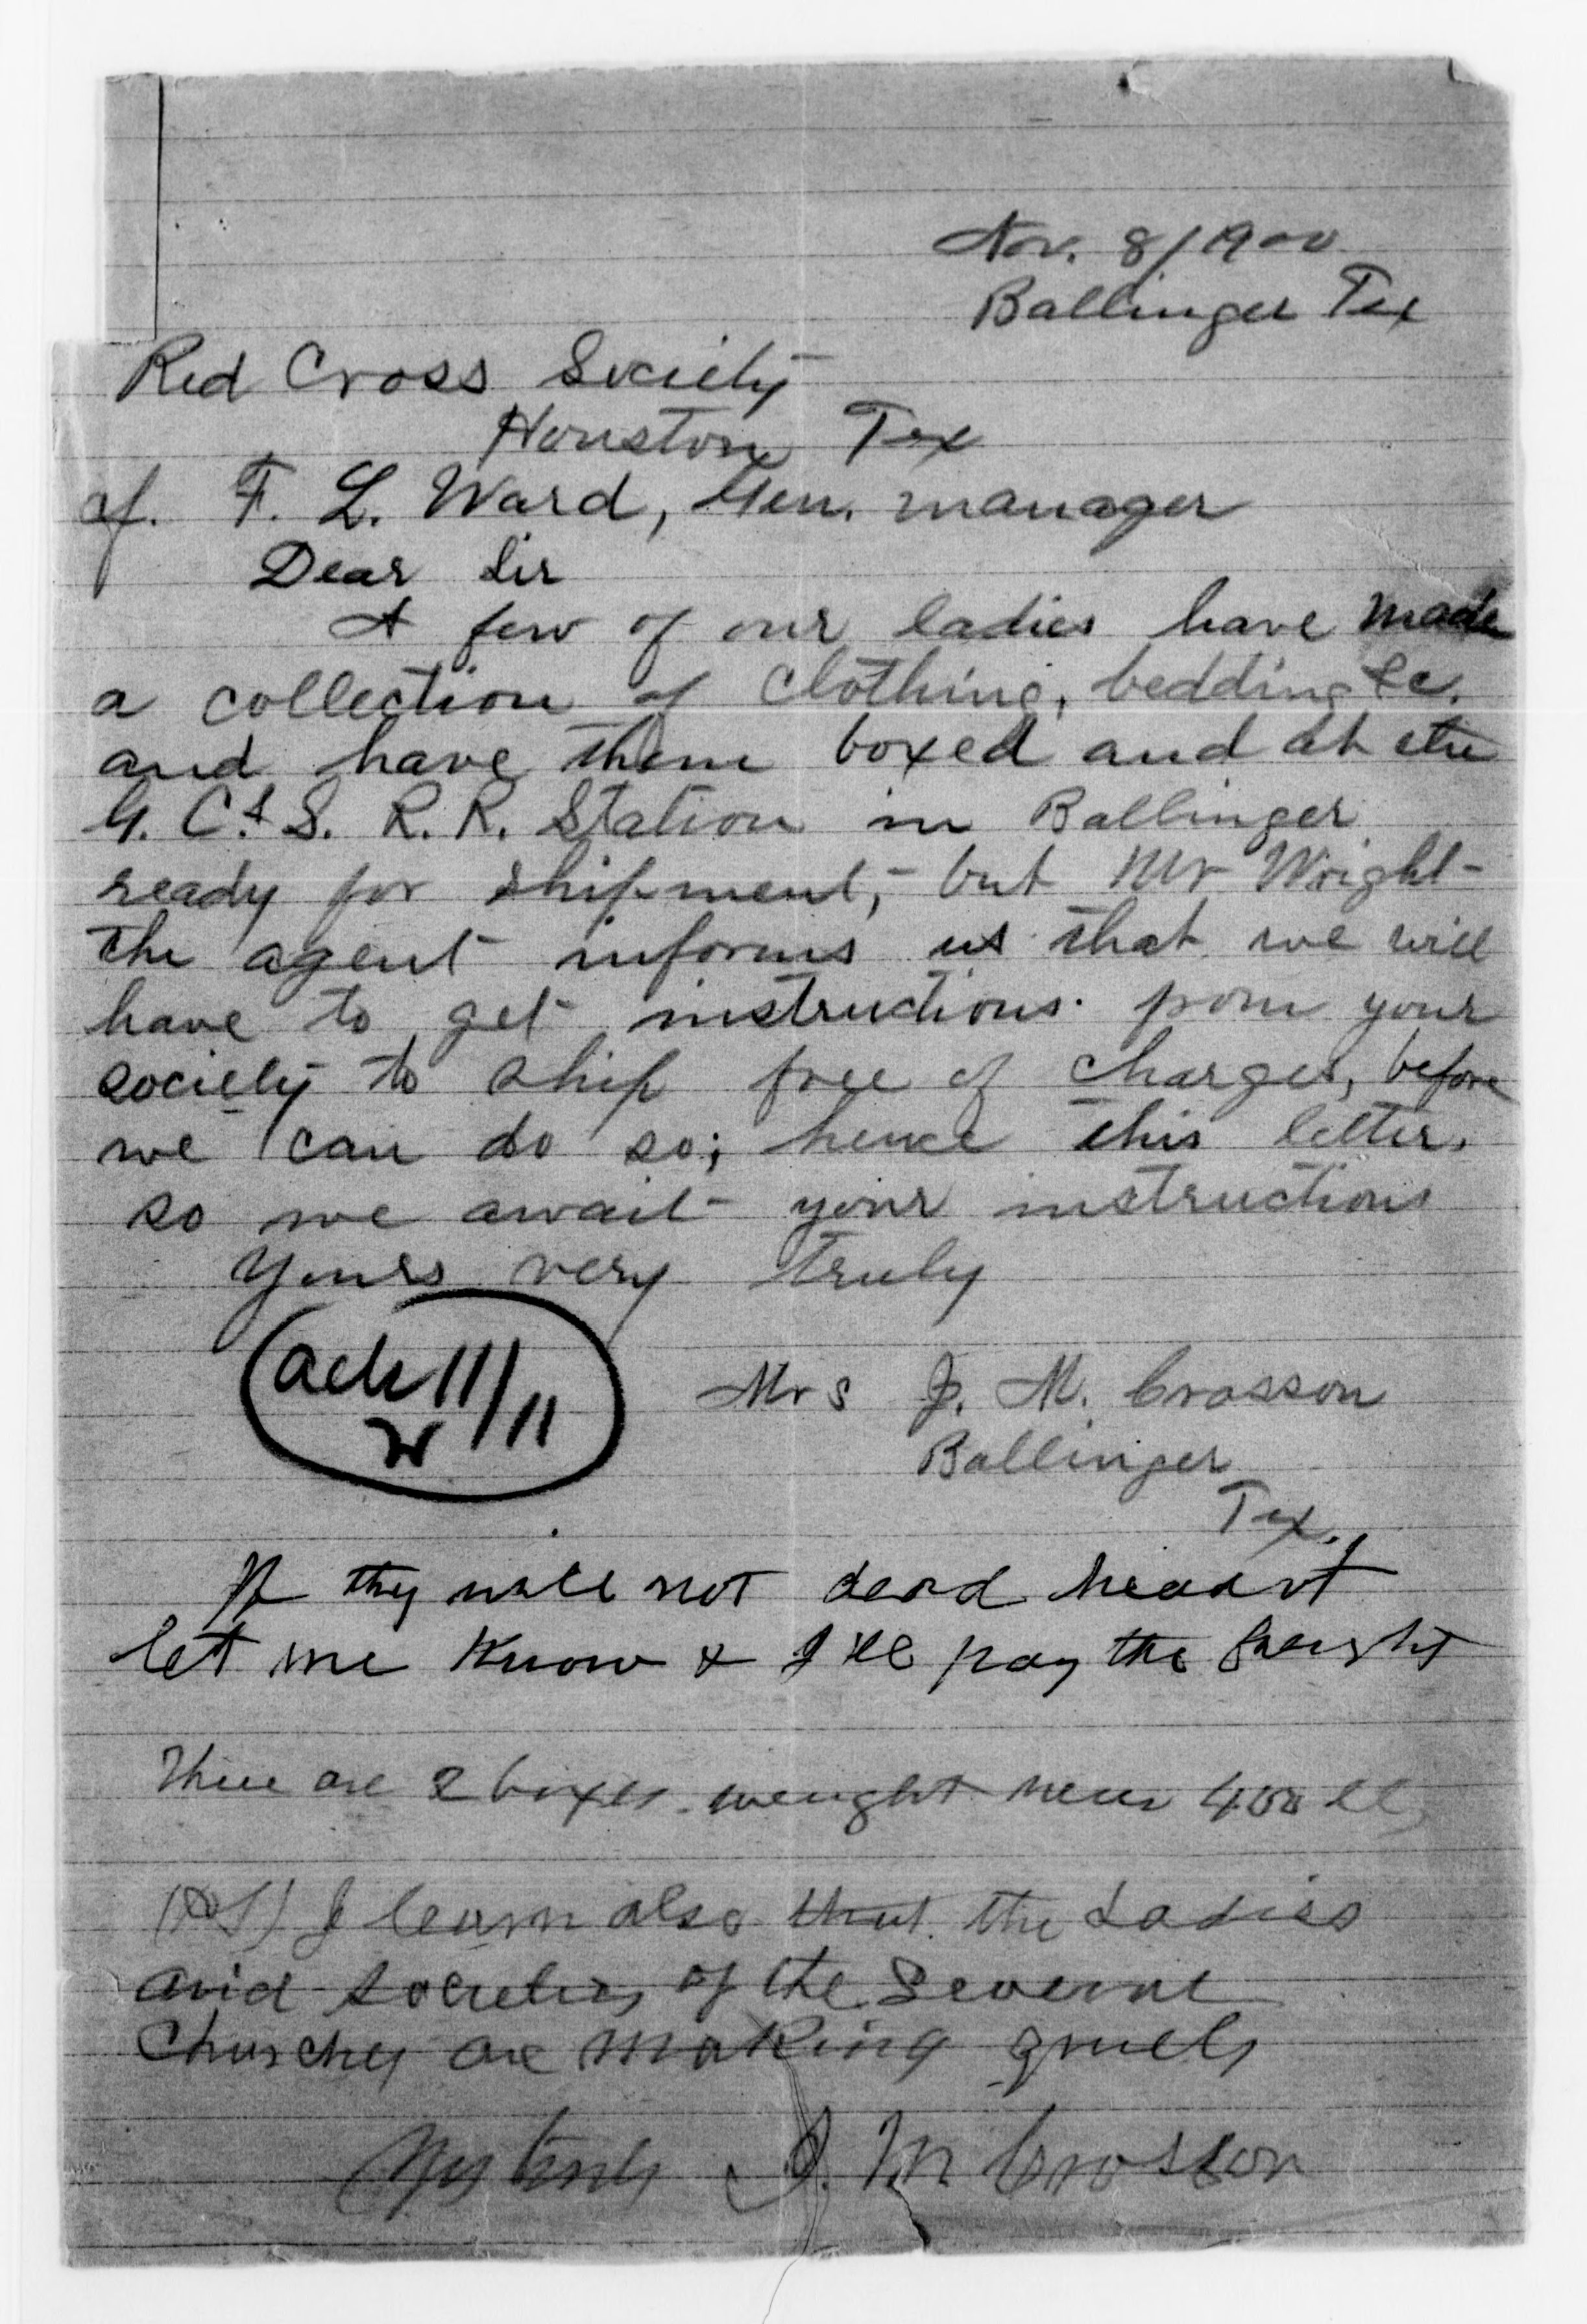 Nov. 8/1900
Ballinger Tex
Red Cross Society
Houston Tex
of. F. L. Ward, Gen. manager
Dear Sir
A few of our ladies have made
a collection of clothing, bedding &c.
and have them boxed and at the
G. C. & S. R. R. Station in Ballinger
ready for shipment, - but Mr Wright
the agent informs us that we will
have to get instructions from your
society to ship free of charges, before
we can do so; hence this letter.
so we await your instructions
Yours very truly
ack 11/11
W
Mrs J. M. Crosson
Ballinger
Tex.
If they will not dead head it
let me know & I'll pay the freight
There are 2 boxes weight near 400 lbs
I learn also that the Ladies
aid Societies of the Several
Churches are making
J. M. Crosson